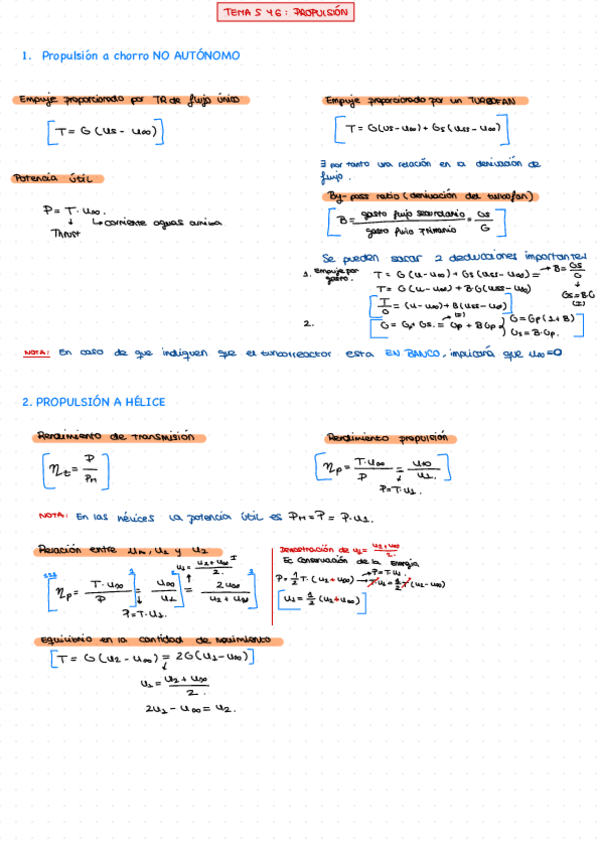 TEMA 5 Y 6: PROPULSIÓN
1. Propulsión a chorro NO AUTÓNOMO
Empuje proporcionado por TR de flujo único
T = G (us - u∞)
Potencia útil
P = T · u∞.
↳ corriente aguas arriba
Thrust
Empuje proporcionado por un TURBOFAN
T = G(us - u∞) + Gs (uss - u∞)
∃ por tanto una relación en la derivación de
flujo.
By-pass ratio (derivación del turbofan)
B = gasto flujo secundario / gasto flujo primario = Gs / G
Se pueden sacar 2 deducciones importantes
1. Empuje por gasto. T = G (u - u∞) + Gs (uss - u∞) = → B = Gs / G
T = G (u - u∞) + B·G (uss - u∞) Gs = B·G (I)
T / G = (u - u∞) + B (uss - u∞)
2. G = Gp + Gs. = (I) Gp + B Gp } G = Gp (1 + B)
Gs = B · Gp.
NOTA: En caso de que indiquen que el turborreactor esta EN BANCO, implicará que u∞ = 0
2. PROPULSIÓN A HÉLICE
Rendimiento de transmisión
ηt = P / PM
Rendimiento propulsión
ηp = T · u∞ / P = u∞ / u1
P = T · u1.
NOTA: En las hélices la potencia útil es PM = P = P · u1.
Relación entre u∞, u1 y u2
u1 = u2 + u∞ / 2
ηp = T · u∞ / P = u∞ / u1 = 2u∞ / u2 + u∞
P = T · u1.
Demostración de u1 = u2 + u∞ / 2.
Ec Conservación de la Energía
P = 1/2 T · (u2 + u∞) → P = T · u1
T · u1 = 1/2 T (u2 - u∞)
u1 = 1/2 (u2 + u∞)
Equilibrio en la cantidad de movimiento
T = G (u2 - u∞) = 2G (u1 - u∞)
u1 = u2 + u∞ / 2.
2u1 - u∞ = u2.